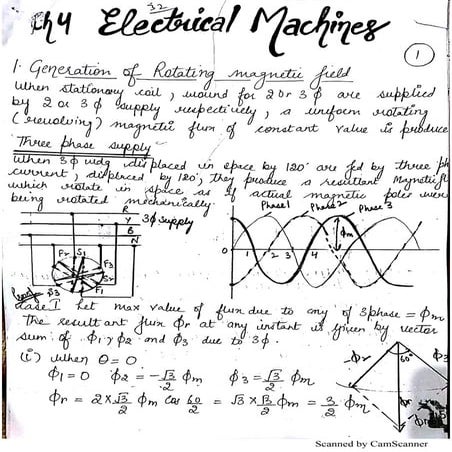 32
Ch 4 Electrical Machines
1
1. Generation of Rotating magnetic field
When stationary coil, wound for 2 or 3ϕ are supplied
by 2 or 3ϕ supply respectively, a uniform rotating
(revolving) magnetic flux of constant value is produce
Three phase supply
When 3ϕ wdg displaced in space by 120° are fed by three ph
current, displaced by 120°, they produce a resultant Magnetic fl
which rotate in space as if actual magnetic poles were
being rotated mechanically
Phase 1 Phase 2 Phase 3
R
Y 3ϕ supply
B
N
F2 S1 F3
S3 F1 S2
ϕm
0 1 2 3 4
Proof
Case I Let max value of flux due to any of 3 phase = ϕm
The resultant flux ϕr at any instant is given by vector
sum of ϕ1, ϕ2 and ϕ3 due to 3ϕ.
(i) when θ = 0
ϕ1 = 0 ϕ2 = -√3/2 ϕm ϕ3 = √3/2 ϕm
ϕr = 2 × √3/2 ϕm cos 60/2 = √3 × √3/2 ϕm = 3/2 ϕm
ϕr 60° ϕ3
Scanned by CamScanner